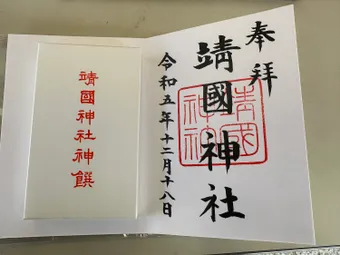 奉拝
靖國神社
令和五年十二月十八日
靖國神社
靖國神社神饌